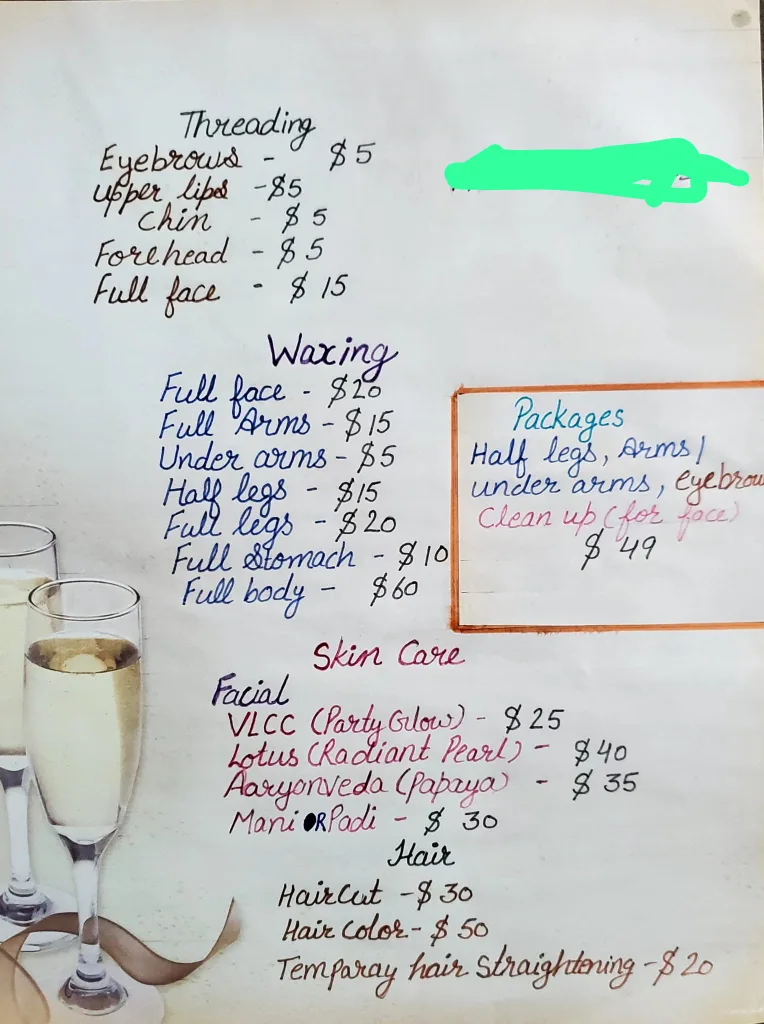 Threading
Eyebrows - $5
upper lips - $5
Chin - $5
Forehead - $5
Full face - $15
Waxing
Full face - $20
Full Arms - $15
Under arms - $5
Half legs - $15
Full legs - $20
Full Stomach - $10
Full body - $60
Packages
Half legs, Arms/
under arms, eyebrow
Clean up (for face)
$49
Skin Care
Facial
VLCC (Party Glow) - $25
Lotus (Radiant Pearl) - $40
Aaryonveda (Papaya) - $35
Mani OR Padi - $30
Hair
HairCut - $30
Hair Color - $50
Temparay hair Straightening - $20